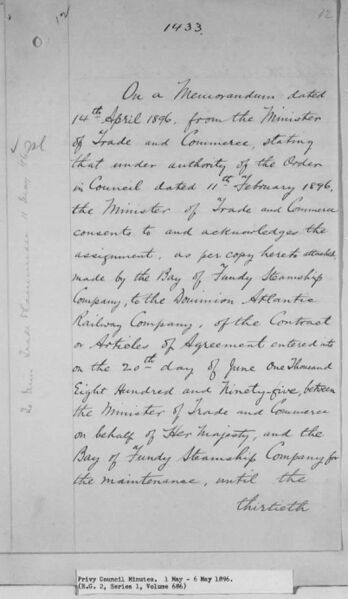 1433
12
On a Memorandum dated
14th April 1896, from the Minister
of Trade and Commerce, stating
that under authority of the Order
in Council dated 11th February 1896,
the Minister of Trade and Commerce
consents to and acknowledges the
assignment, as per copy hereto attached,
made by the Bay of Fundy Steamship
Company, to the Dominion Atlantic
Railway Company, of the Contract
or Articles of Agreement entered into
on the 20th day of June One Thousand
Eight Hundred and Ninety-five, between
the Minister of Trade and Commerce
on behalf of Her Majesty, and the
Bay of Fundy Steamship Company for
the maintenance, until the
thirtieth
Trade & Commerce 11 May 96
Privy Council Minutes. 1 May - 6 May 1896.
(R.G. 2, Series 1, Volume 686)